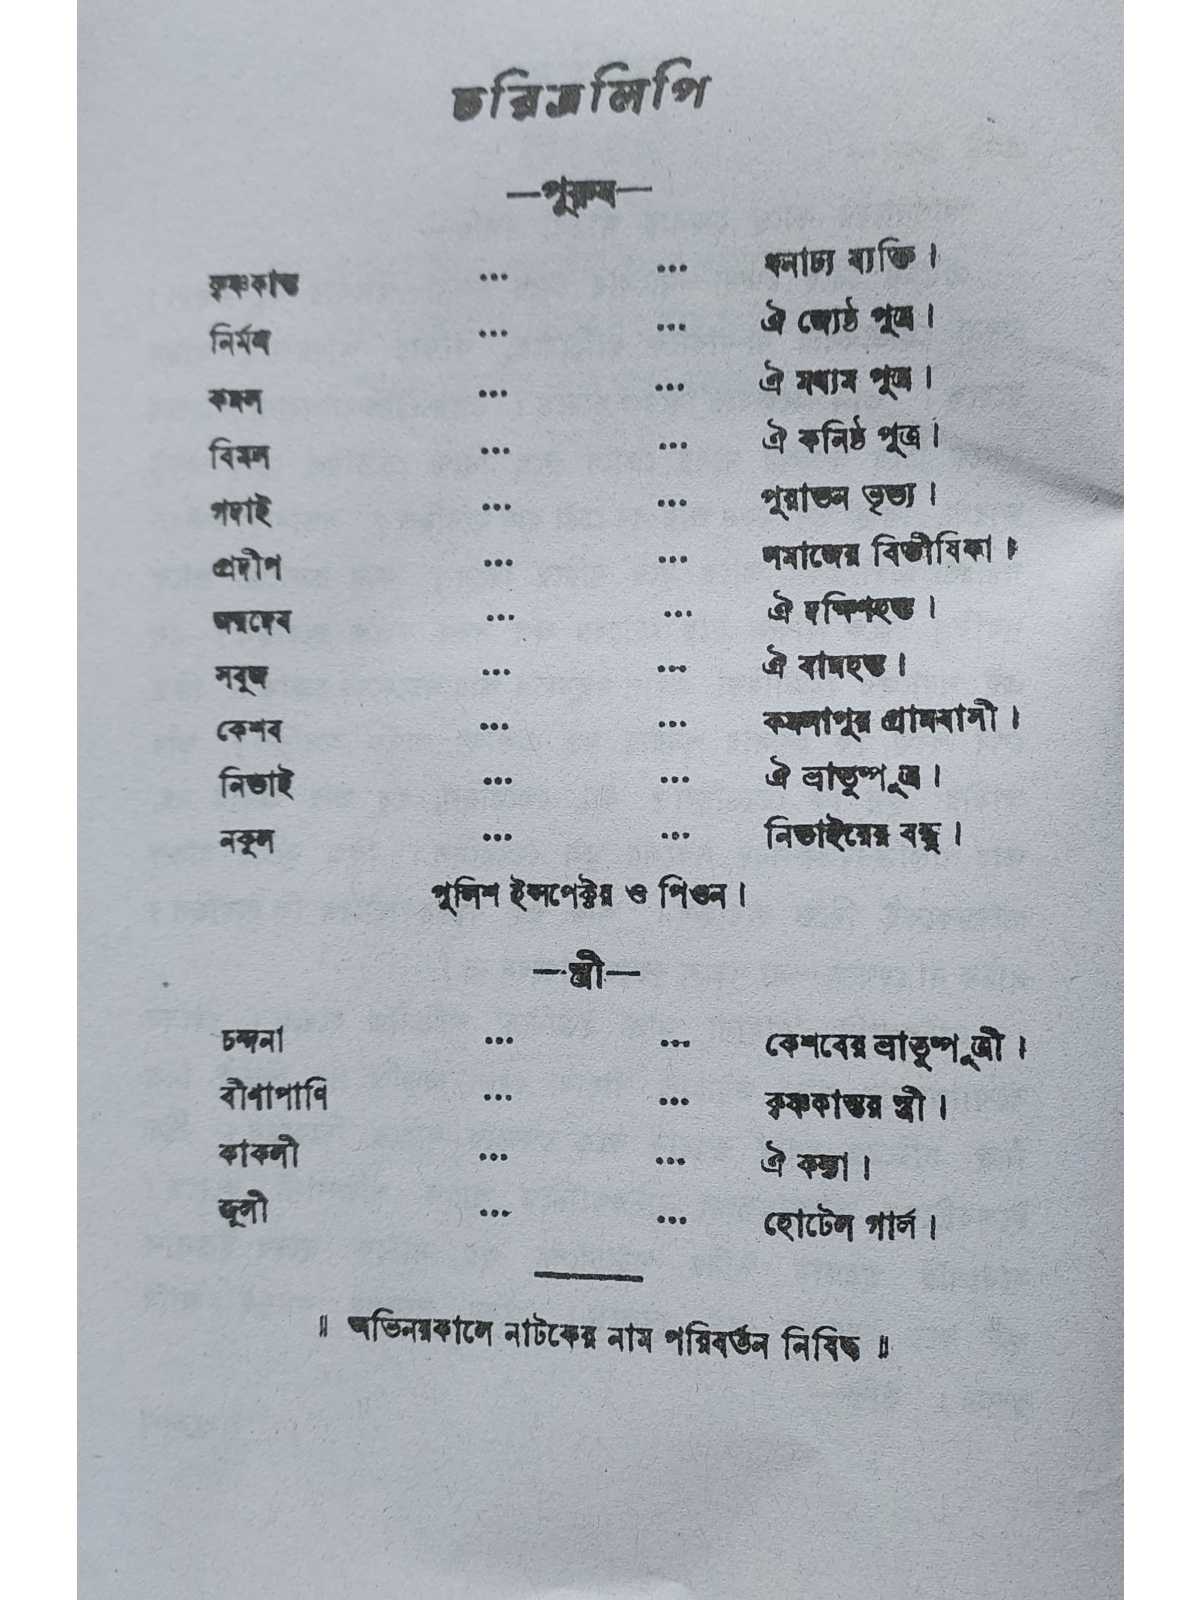 চরিত্রলিপি
—পুরুষ—
কৃষ্ণকান্ত ... ... ধনাঢ্য ব্যক্তি ।
নির্মল ... ... ঐ জ্যেষ্ঠ পুত্র ।
কমল ... ... ঐ মধ্যম পুত্র ।
বিমল ... ... ঐ কনিষ্ঠ পুত্র ।
গদাই ... ... পুরাতন ভৃত্য ।
প্রদীপ ... ... সমাজের বিভীষিকা ।
জয়দেব ... ... ঐ দক্ষিণহস্ত ।
সবুজ ... ... ঐ বামহস্ত ।
কেশব ... ... কমলাপুর গ্রামবাসী ।
নিতাই ... ... ঐ ভ্রাতুষ্পুত্র ।
নকুল ... ... নিতাইয়ের বন্ধু ।
পুলিশ ইন্সপেক্টর ও পিওন ।
—স্ত্রী—
চন্দনা ... ... কেশবের ভ্রাতুষ্পুত্রী ।
বীণাপাণি ... ... কৃষ্ণকান্তর স্ত্রী ।
কাকলী ... ... ঐ কন্যা ।
জুলী ... ... হোটেল গার্ল ।
॥ অভিনয়কালে নাটকের নাম পরিবর্তন নিষিদ্ধ ॥